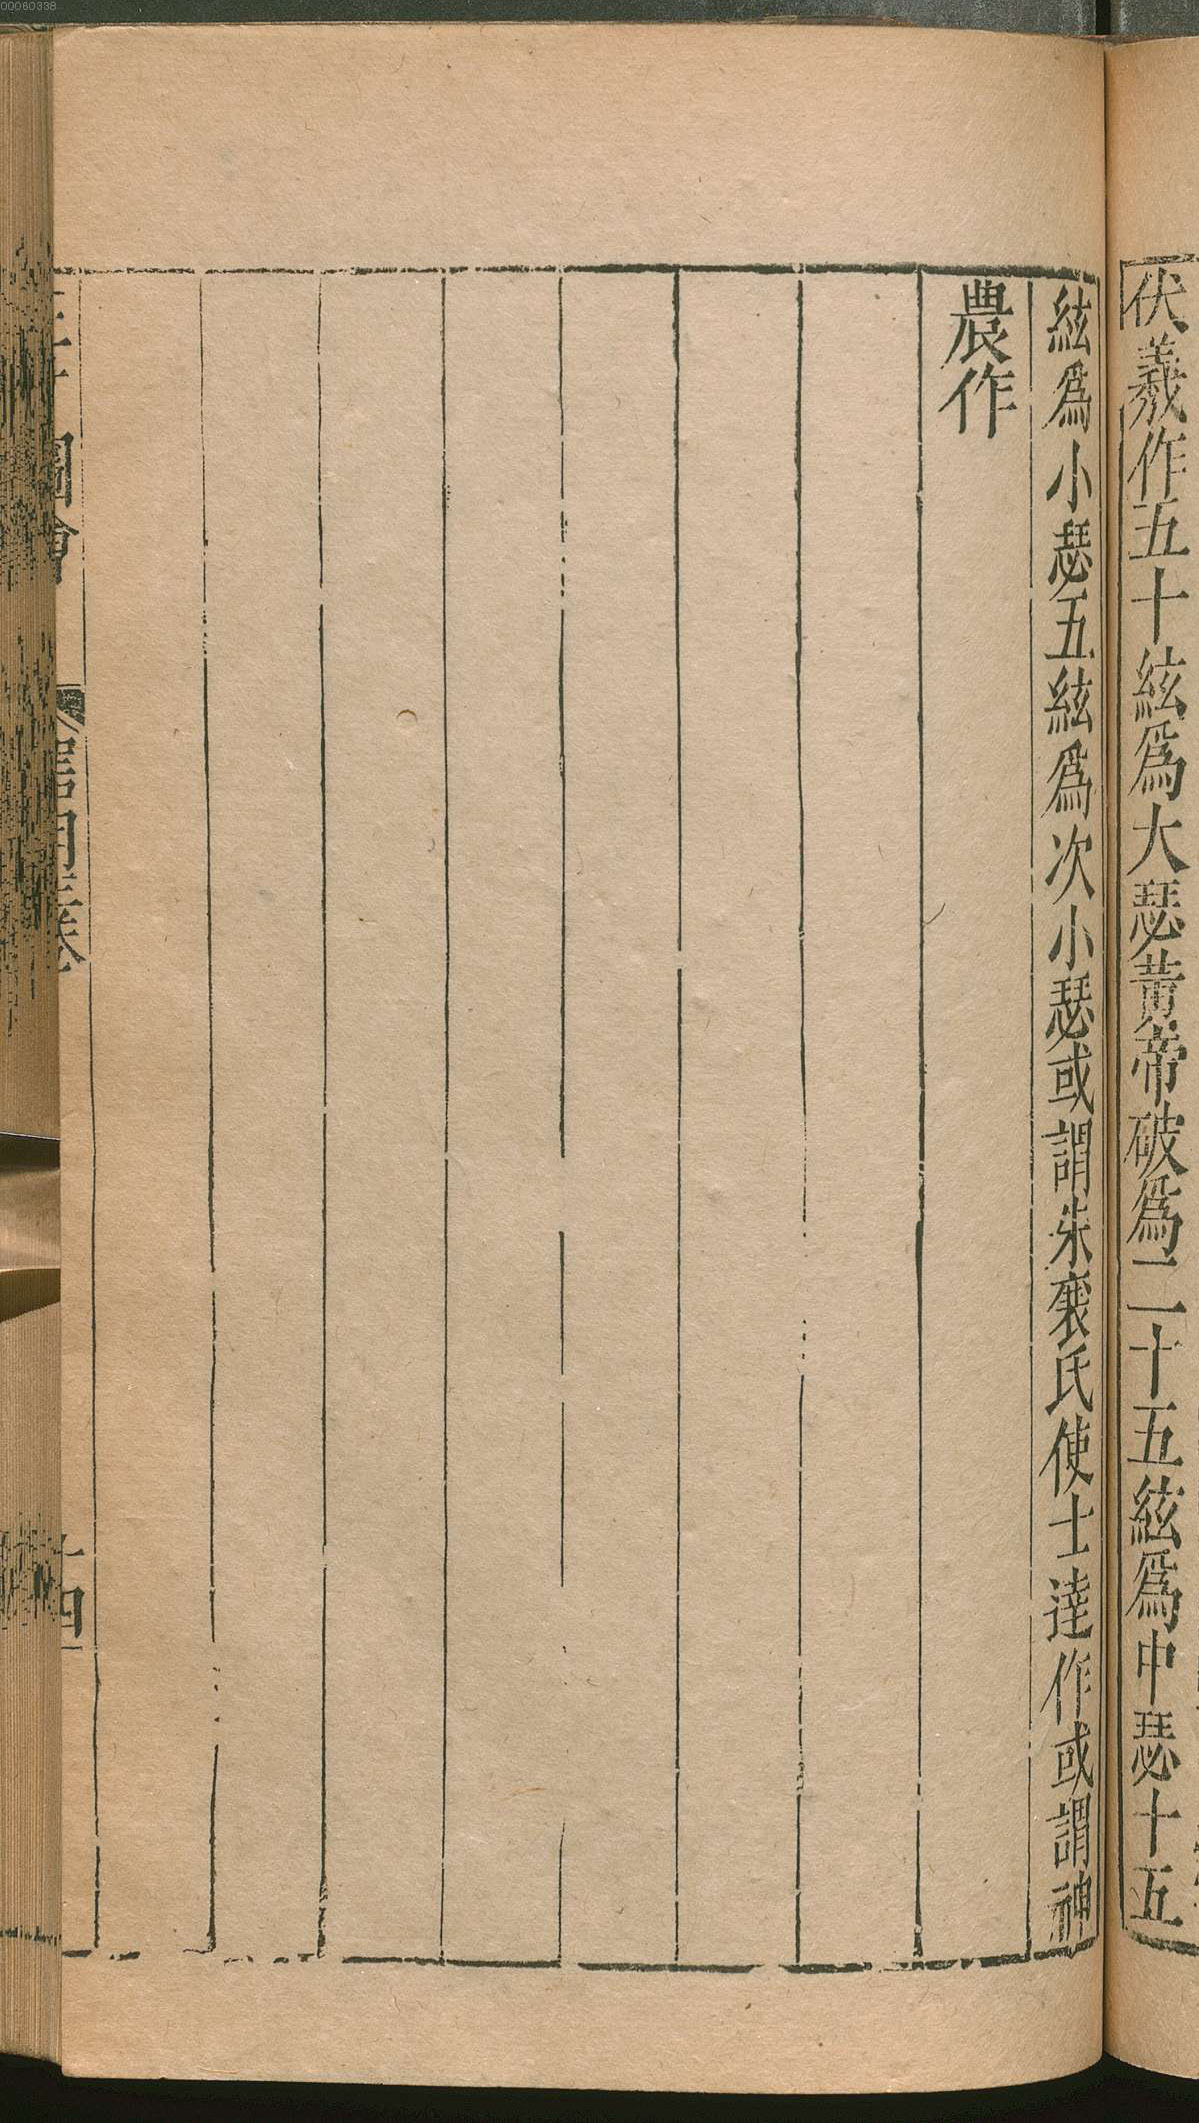 伏羲作五十絃爲大瑟黃帝破爲二十五絃爲中瑟十五
絃爲小瑟五絃爲次小瑟或謂朱襄氏使士達作或謂神
農作
圖會
器用三卷
十四
00060338